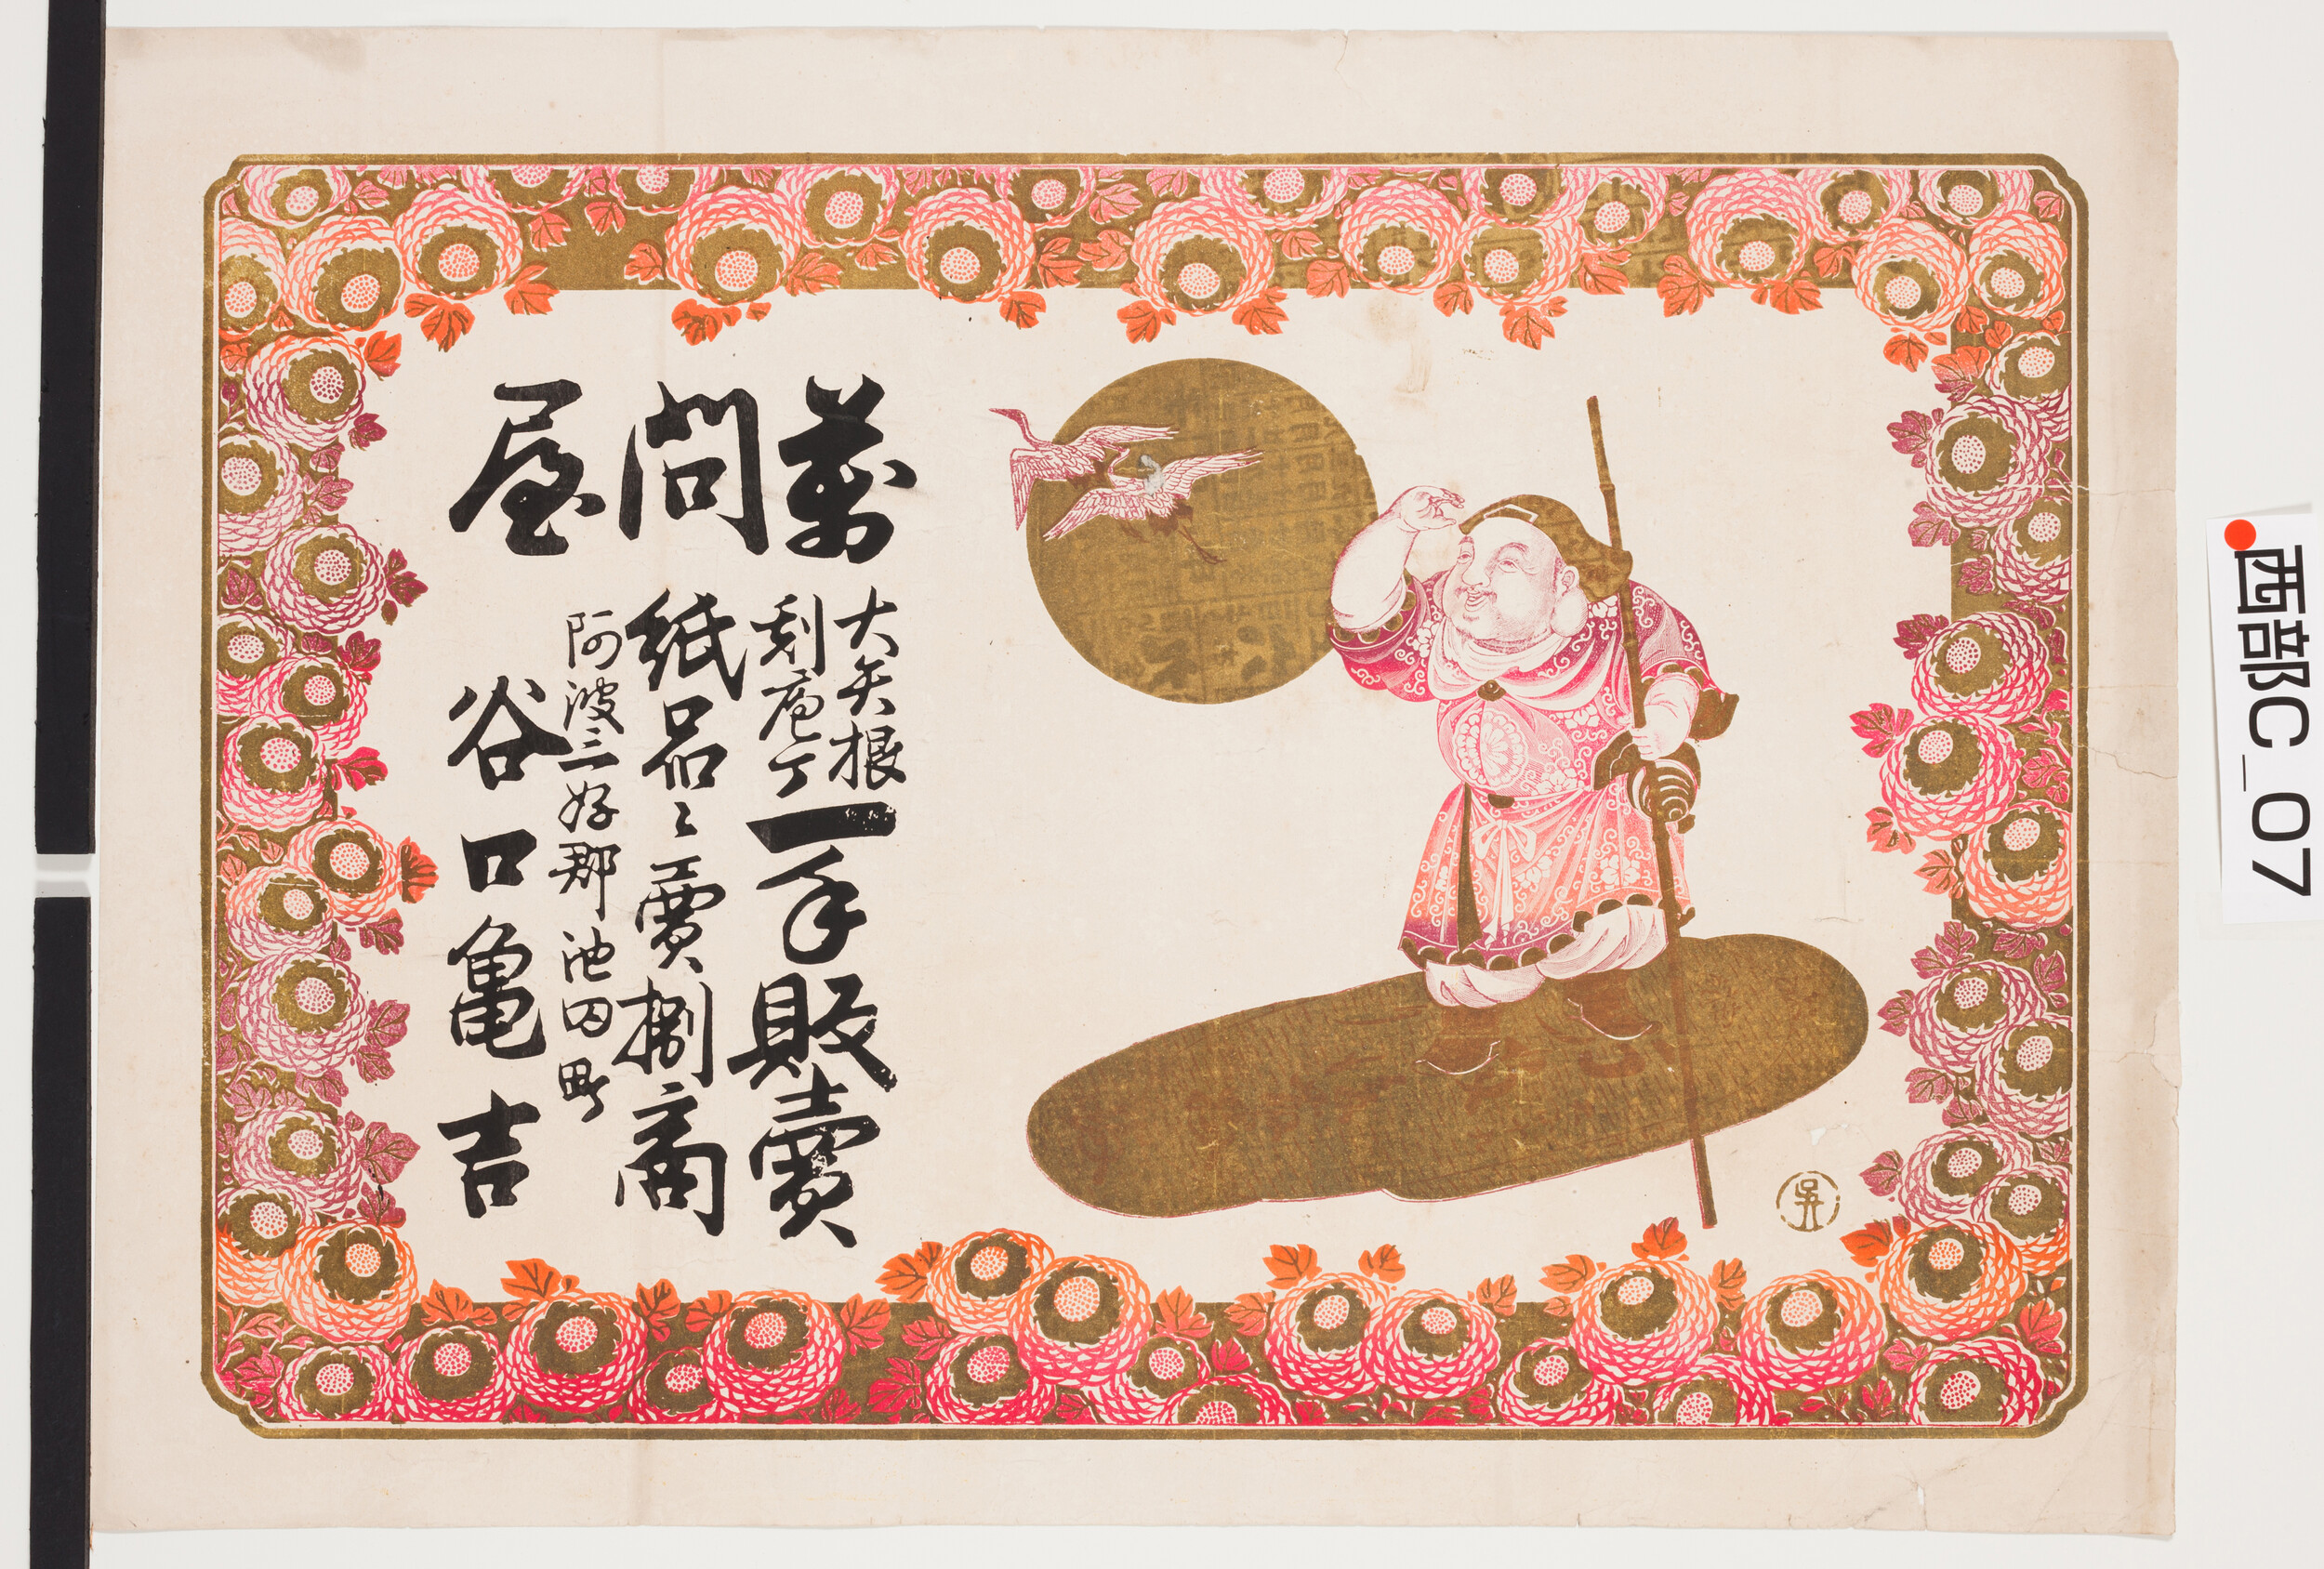 萬問屋
大矢根
刻庖丁
一手販賣
紙品々賣捌商
阿波三好郡池田町
谷口亀吉
西部C_07